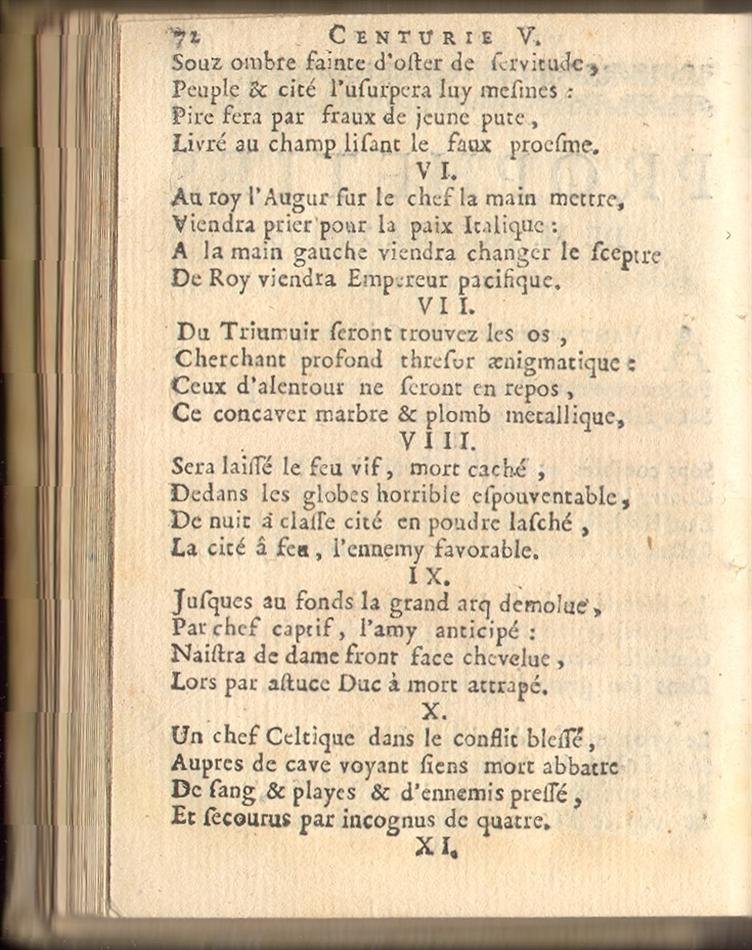 72 CENTURIE V.
Souz ombre fainte d'oſter de ſervitude,
Peuple & cité l'uſurpera luy meſmes :
Pire fera par fraux de jeune pute,
Livré au champ liſant le faux proeſme.
VI.
Au roy l'Augur ſur le chef la main mettre,
Viendra prier pour la paix Italique :
A la main gauche viendra changer le ſceptre
De Roy viendra Empereur pacifique.
VII.
Du Triumuir ſeront trouvez les os,
Cherchant profond threſor ænigmatique :
Ceux d'alentour ne ſeront en repos,
Ce concaver marbre & plomb metallique,
VIII.
Sera laiſſé le feu vif, mort caché,
Dedans les globes horrible eſpouventable,
De nuit à claſſe cité en poudre laſché,
La cité â feu, l'ennemy favorable.
IX.
Juſques au fonds la grand arq demolue,
Par chef captif, l'amy anticipé :
Naiſtra de dame front face chevelue,
Lors par aſtuce Duc à mort attrapé.
X.
Un chef Celtique dans le conflit bleſſé,
Aupres de cave voyant ſiens mort abbatre
De ſang & playes & d'ennemis preſſé,
Et ſecourus par incognus de quatre.
XI.